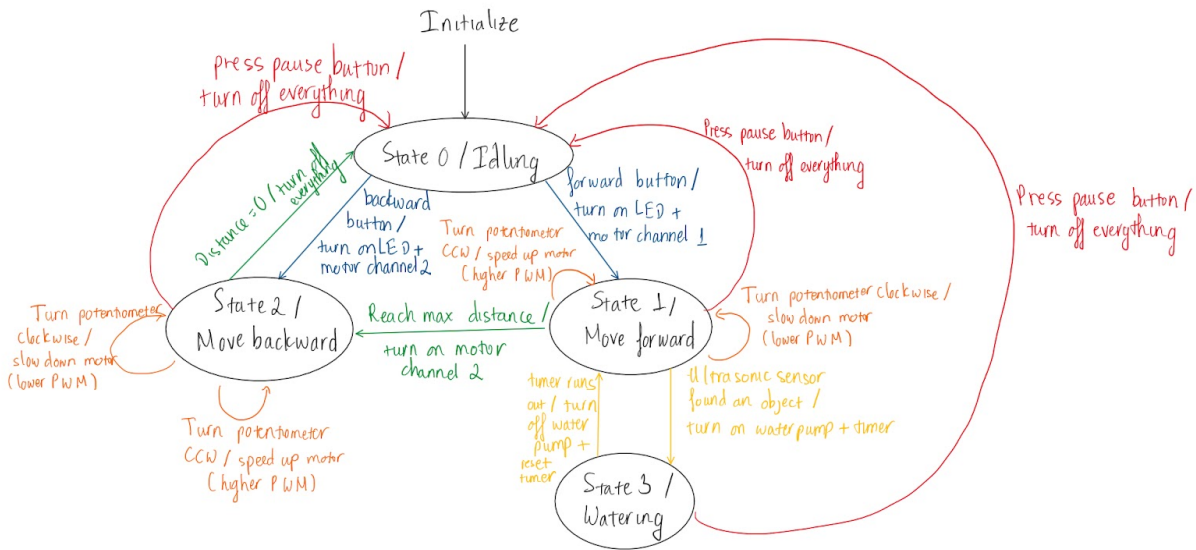 Initialize
press pause button /
turn off everything
State 0 / Idling
Press pause button/
turn off everything
Press pause button /
turn off everything
Distance = 0 / turn off
everything
backward
button /
turn on LED +
motor channel 2
forward button /
turn on LED +
motor channel 1
Turn potentiometer
CCW / speed up motor
(higher PWM)
State 2 /
Move backward
State 1 /
Move forward
Turn potentiometer
clockwise /
slow down motor
(lower PWM)
Reach max distance /
turn on motor
channel 2
Turn potentiometer clockwise /
slow down motor
(lower PWM)
Turn potentiometer
CCW / speed up motor
(higher PWM)
timer runs
out / turn
off water
pump +
reset
timer
Ultrasonic sensor
found an object /
turn on water pump + timer
State 3 /
Watering